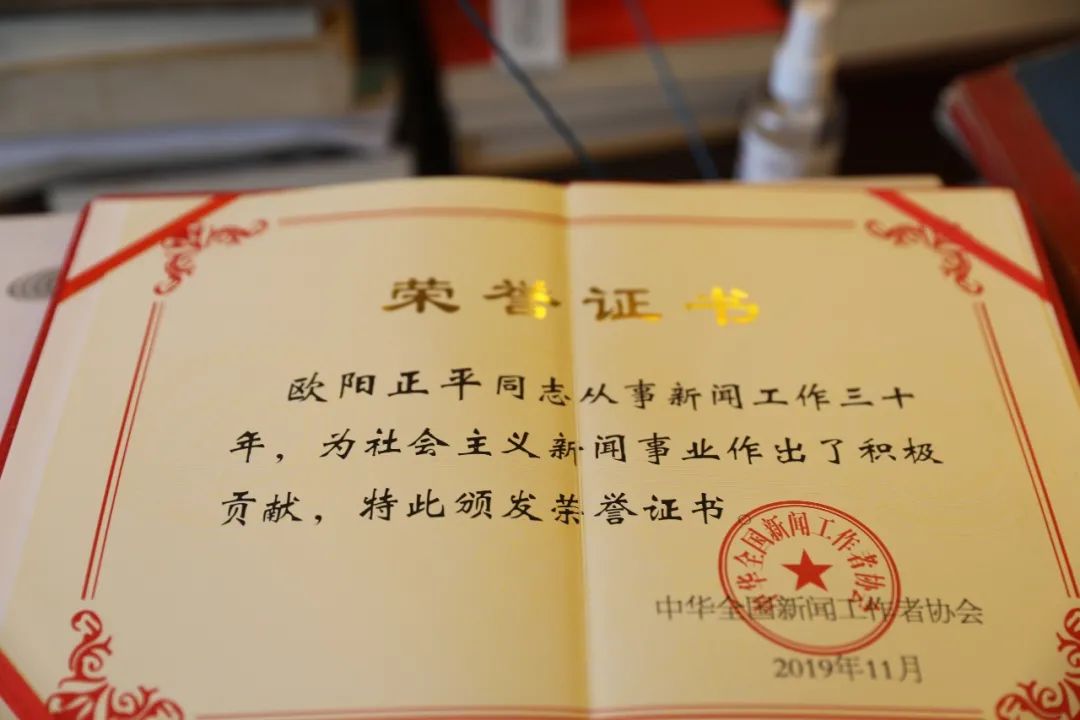 荣誉证书
欧阳正平同志从事新闻工作三十
年，为社会主义新闻事业作出了积极
贡献，特此颁发荣誉证书。
中华全国新闻工作者协会
中华全国新闻工作者协会
2019年11月